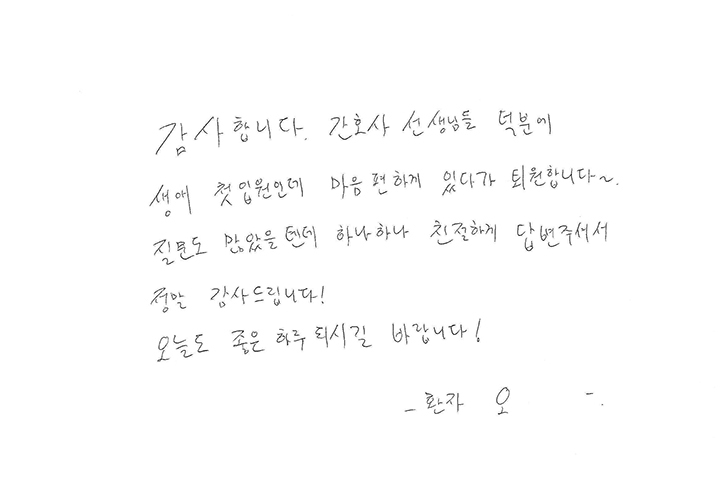 감사합니다. 간호사 선생님들 덕분에
생애 첫 입원인데 마음 편하게 있다가 퇴원합니다~.
질문도 많았을텐데 하나하나 친절하게 답변주셔서
정말 감사드립니다!
오늘도 좋은 하루 되시길 바랍니다!
- 환자 오 -.